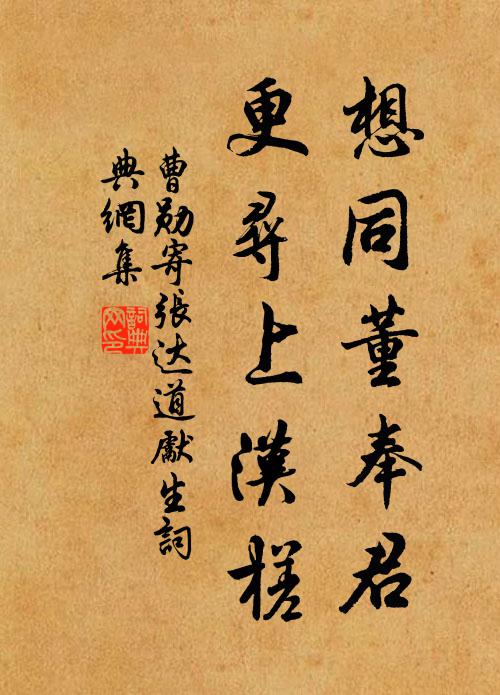 想同董奉君
更尋上漢槎
曹勋寄張达道獻生詞
典網集
詞典
网印